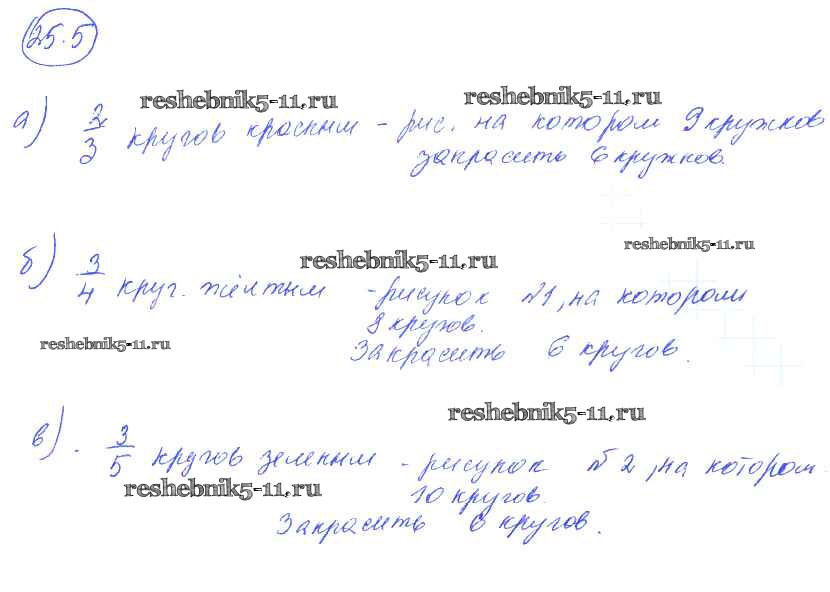 25.5
reshebnik5-11.ru reshebnik5-11.ru
а) 2/3 кругов красным - рис. на котором 9 кружков
закрасить 6 кружков.
reshebnik5-11.ru reshebnik5-11.ru
б) 3/4 круг. жёлтым - рисунок №1, на котором
8 кругов.
reshebnik5-11.ru
Закрасить 6 кругов.
reshebnik5-11.ru
в). 3/5 кругов зеленым - рисунок №2, на котором
reshebnik5-11.ru
10 кругов.
Закрасить 6 кругов.